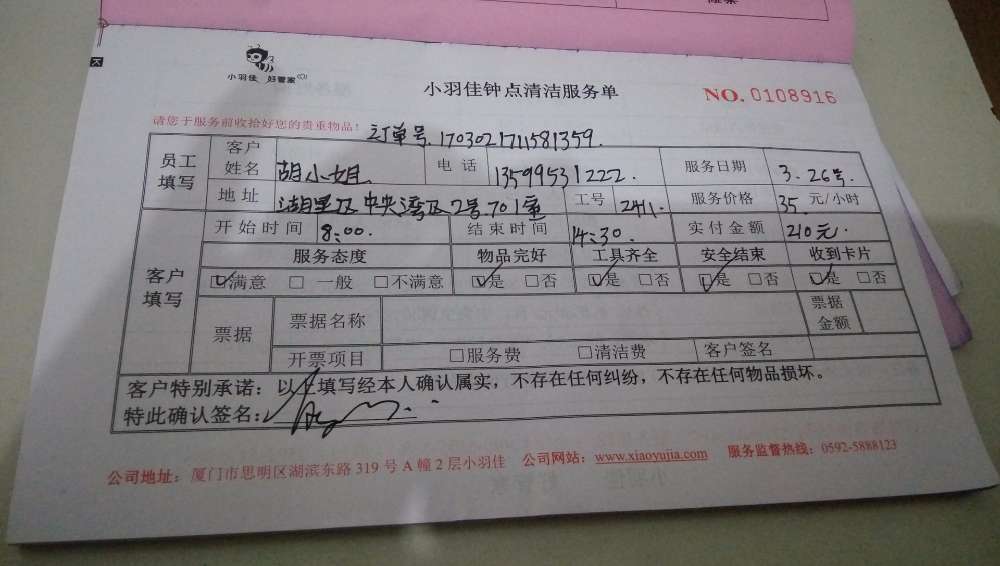 小羽佳 好管家
小羽佳钟点清洁服务单
NO. 0108916
请您于服务前收拾好您的贵重物品！
订单号.1703021711581359.
员工填写 客户姓名 胡小姐 电话 13599531222. 服务日期 3.26号.
地址 湖里区中央湾区2号701室 工号 2411. 服务价格 35. 元/小时
客户填写 开始时间 8:00. 结束时间 14:30. 实付金额 210元.
服务态度 物品完好 工具齐全 安全结束 收到卡片
☑满意 □一般 □不满意 ☑是 □否 ☑是 □否 ☑是 □否 ☑是 □否
票据 票据名称 票据金额
开票项目 □服务费 □清洁费 客户签名
客户特别承诺：以上填写经本人确认属实，不存在任何纠纷，不存在任何物品损坏。
特此确认签名：
公司地址：厦门市思明区湖滨东路319号A幢2层小羽佳 公司网站：www.xiaoyujia.com 服务监督热线：0592-5888123